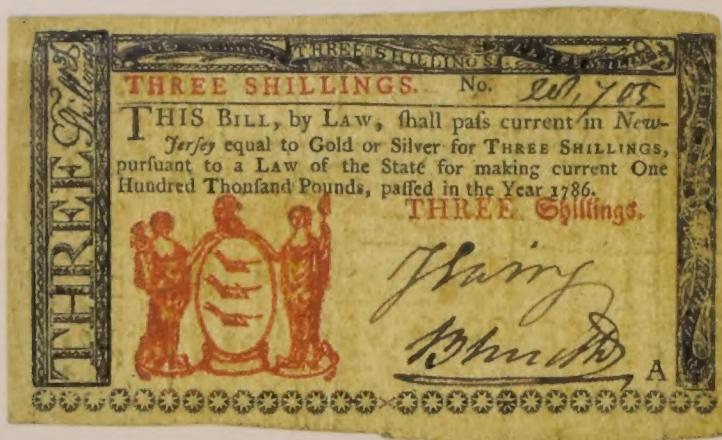 THREE SHILLINGS
THREE SHILLINGS. No.
THIS BILL, by LAW, ſhall paſs current in New-
Jerſey equal to Gold or Silver for THREE SHILLINGS,
purſuant to a LAW of the State for making current One
Hundred Thouſand Pounds, paſſed in the Year 1786.
THREE Shillings.
A
THREE Shillings